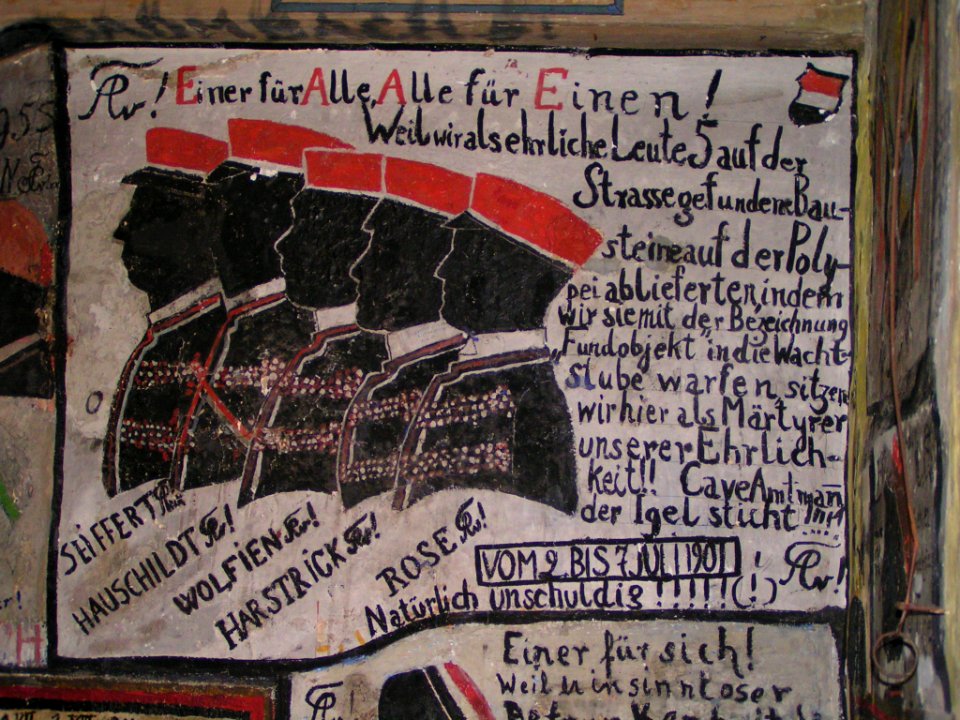 Einer für Alle, Alle für Einen!
Weil wir als ehrliche Leute 5 auf der
Strasse gefundene Bau-
steine auf der Poly-
pei ablieferten, indem
wir sie mit der Bezeichnung
"Fundobjekt" in die Wacht-
stube warfen, sitzen
wir hier als Märtyrer
unserer Ehrlich-
keit!! Cave Amtmann
der Igel sticht
SEIFFERT
HAUSCHILDT
WOLFIEN
HARSTRICK
ROSE
VOM 2. BIS 7. JULI 1901
Natürlich unschuldig !!!!!(!)
Einer für sich!
Weil in sinnloser